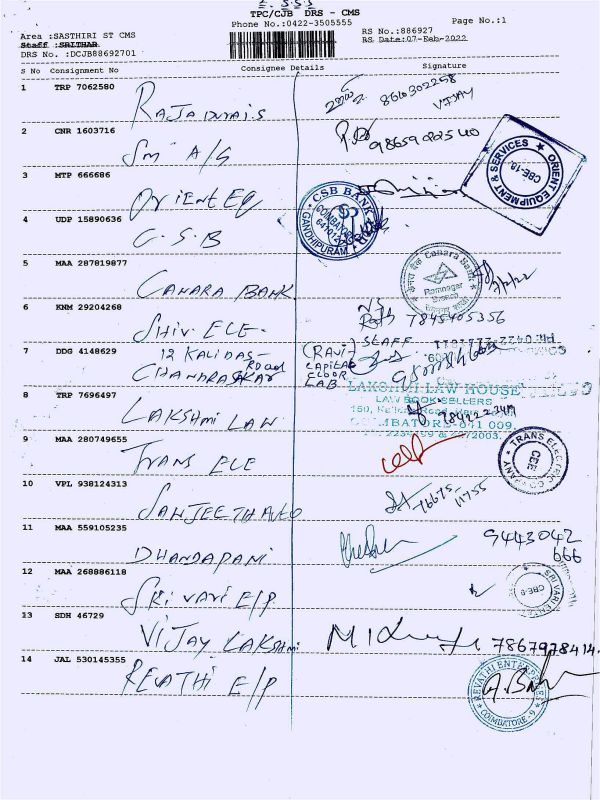 TPC/CJB DRS - CMS
Phone No.:0422-3505555
Page No.:1
Area :SASTHIRI ST CMS
RS No.:886927
Staff :SRITHAR
RS Date:07-Feb-2022
DRS No. :DCJB88692701
S No Consignment No Consignee Details Signature
1 TRP 7062580
RAJADURAI.S
VIJAY
2 CNR 1603716
SM A/G
98659 02540
3 MTP 666686
ORIENT EQ
ORIENT EQUIPMENT & SERVICES
CBE-18
4 UDP 15890636
C.S.B
CSB BANK
GANDHIPURAM
5 MAA 287819877
CANARA BANK
Canara Bank
Ramnagar
Branch
6 KNM 29204268
SHIV ELE-
7845405356
7 DDG 4148629
12 KALIDAS-
Road
CHANDRASEKAR
(RAVI) STAFF
CAPITAL
FLOOR
LAB
8 TRP 7696497
LAKSHMI LAW
LAKSHMI LAW HOUSE
LAW BOOK SELLERS
COIMBATORE-641 009.
9 MAA 280749655
TRANS ELE
TRANS ELECTRIC COMPANY
CBE
10 VPL 938124313
76675-11755
11 MAA 559105235
DHANDAPANI
9443042
666
12 MAA 268886118
SRI VARI E/P.
SRI VARI ENTE
CBE-9
13 SDH 46729
VIJAY LAKSHMI
7867978414
14 JAL 530145355
REVATHI E/P
REVATHI ENTERPRISES
COIMBATORE-9